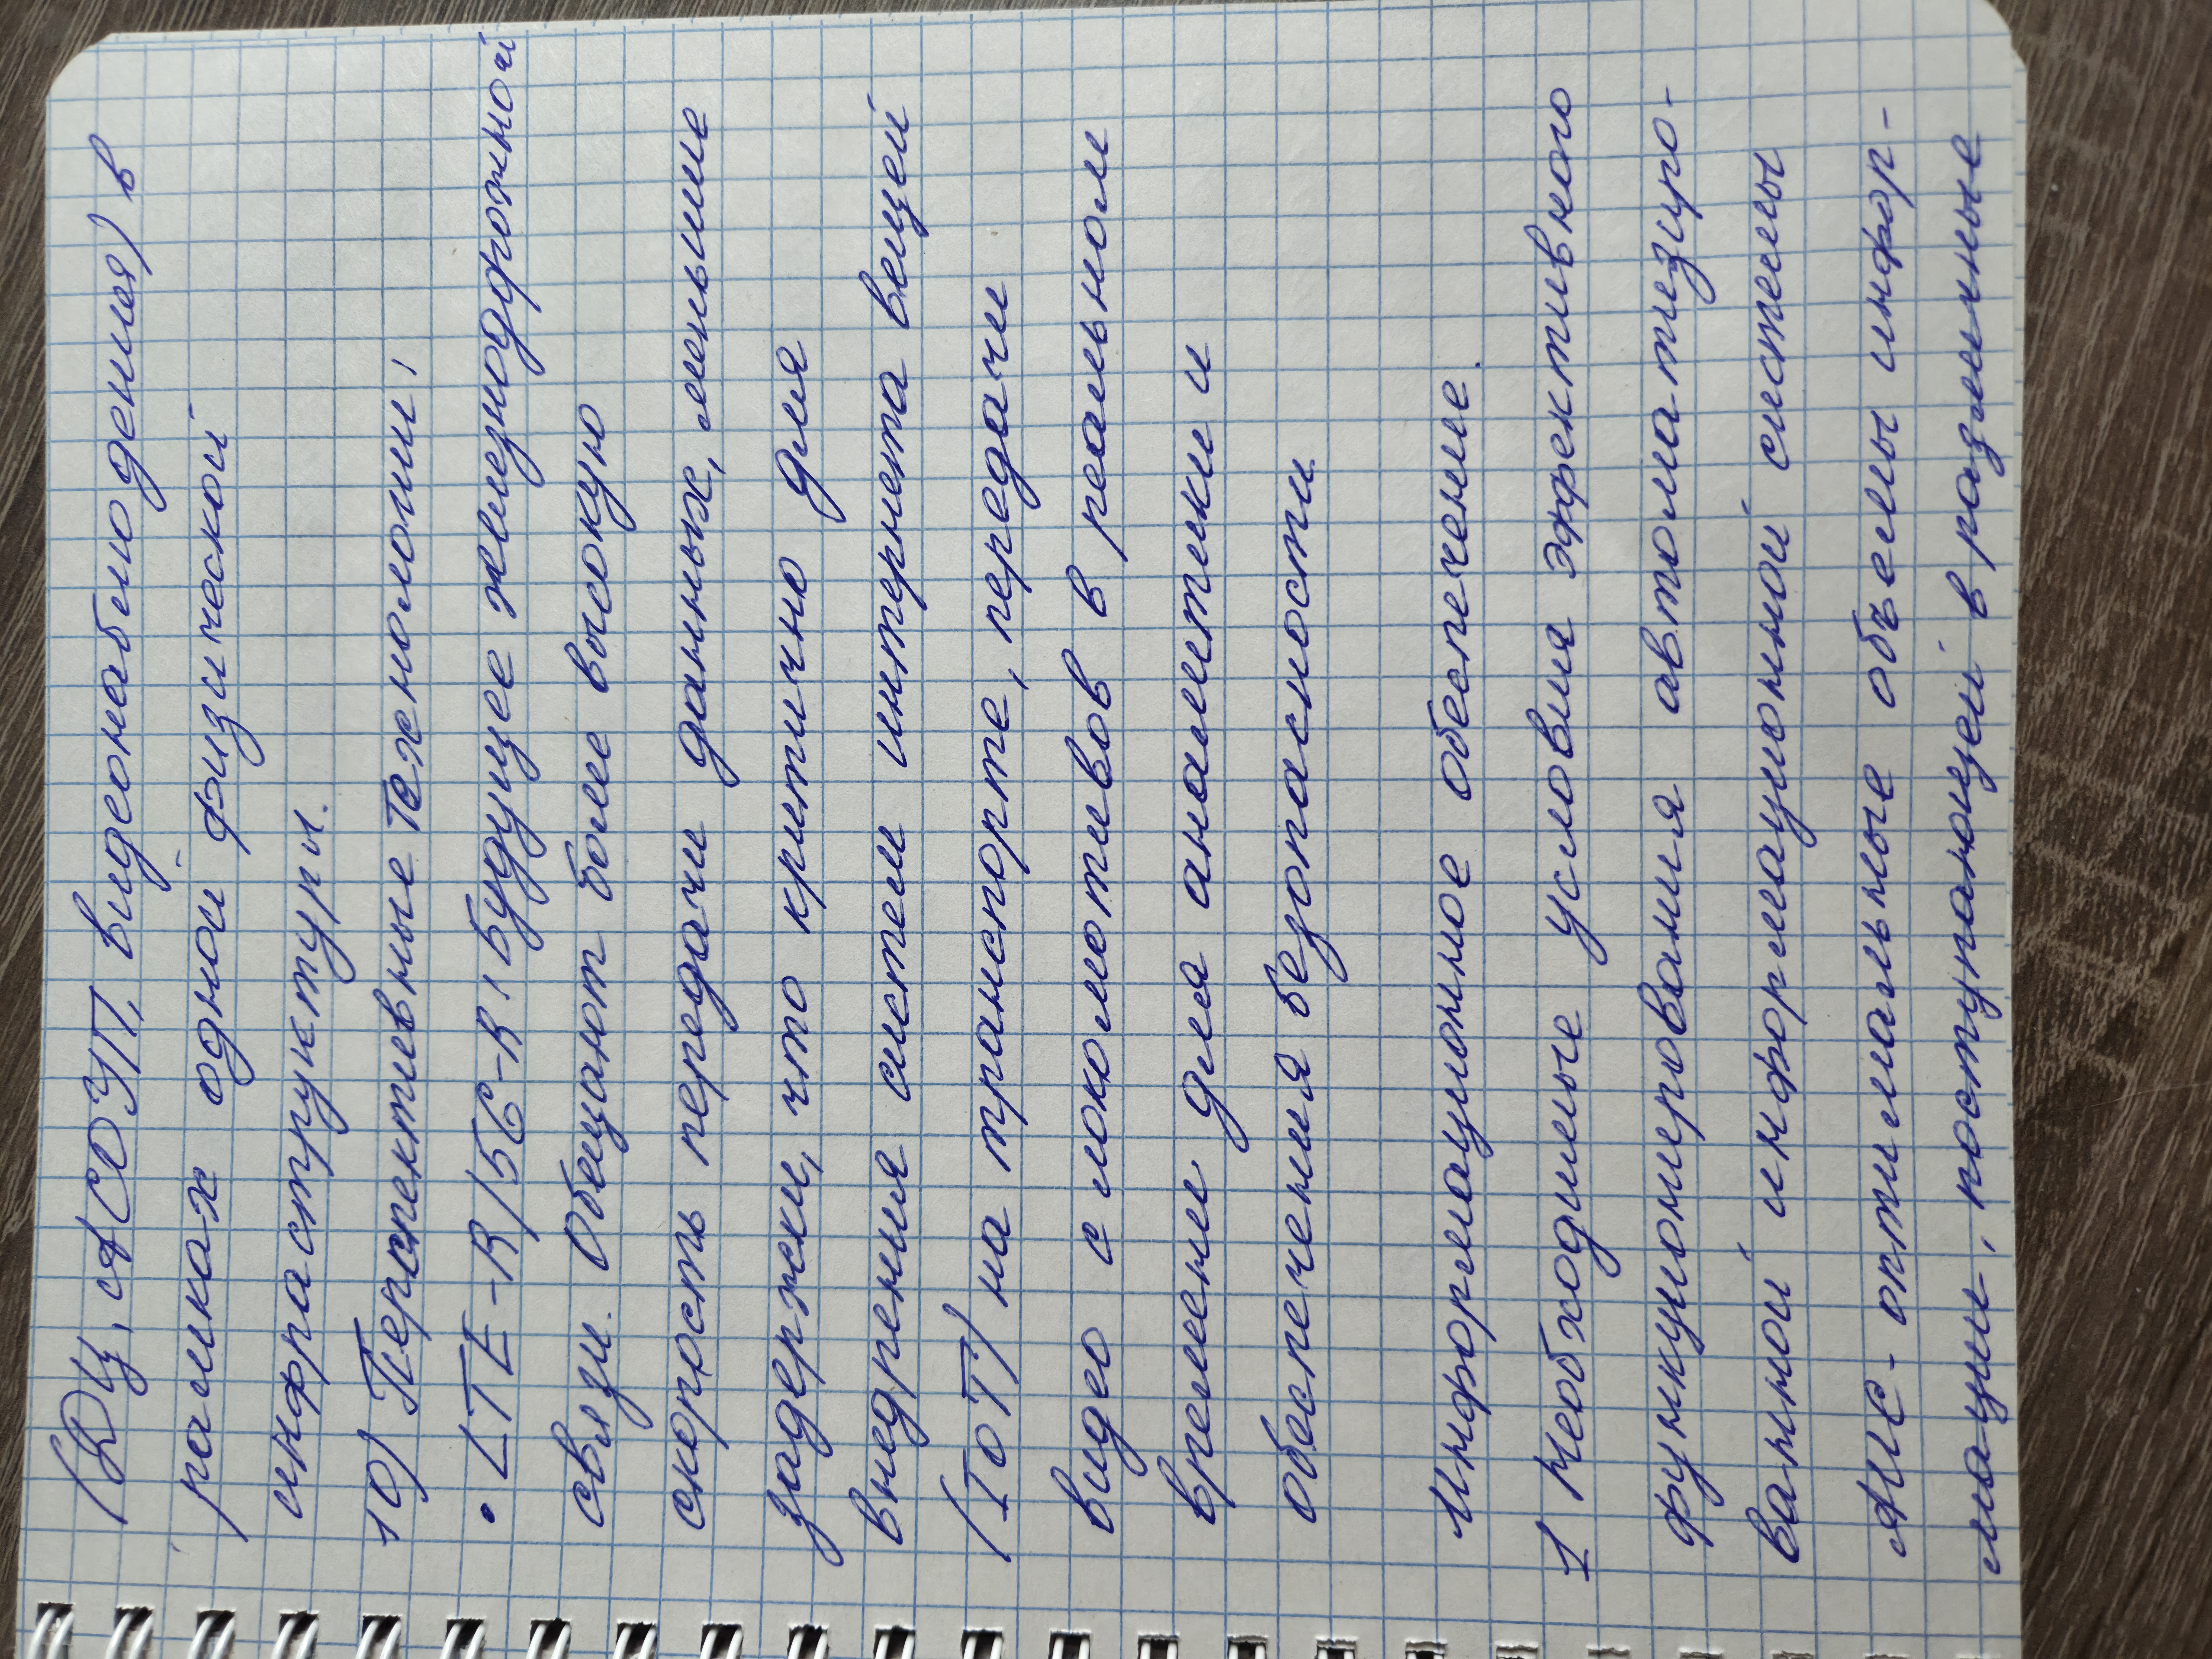 (ДЦ, АСОУП, видеонаблюдения) в
рамках одной физической
инфраструктуры.
10) Перспективные технологии:
• LTE-R/5G-R: Будущее железнодорожной
связи. Обещают более высокую
скорость передачи данных, меньшие
задержки, что критично для
внедрения систем интернета вещей
(IoT) на транспорте, передачи
видео с локомотивов в реальном
времени для аналитики и
обеспечения безопасности.
Информационное обеспечение.
1 Необходимые условия эффективного
функционирования автоматизиро-
ванной информационной системы
АИС - оптимальные объемы инфор-
мации, поступающей в различные